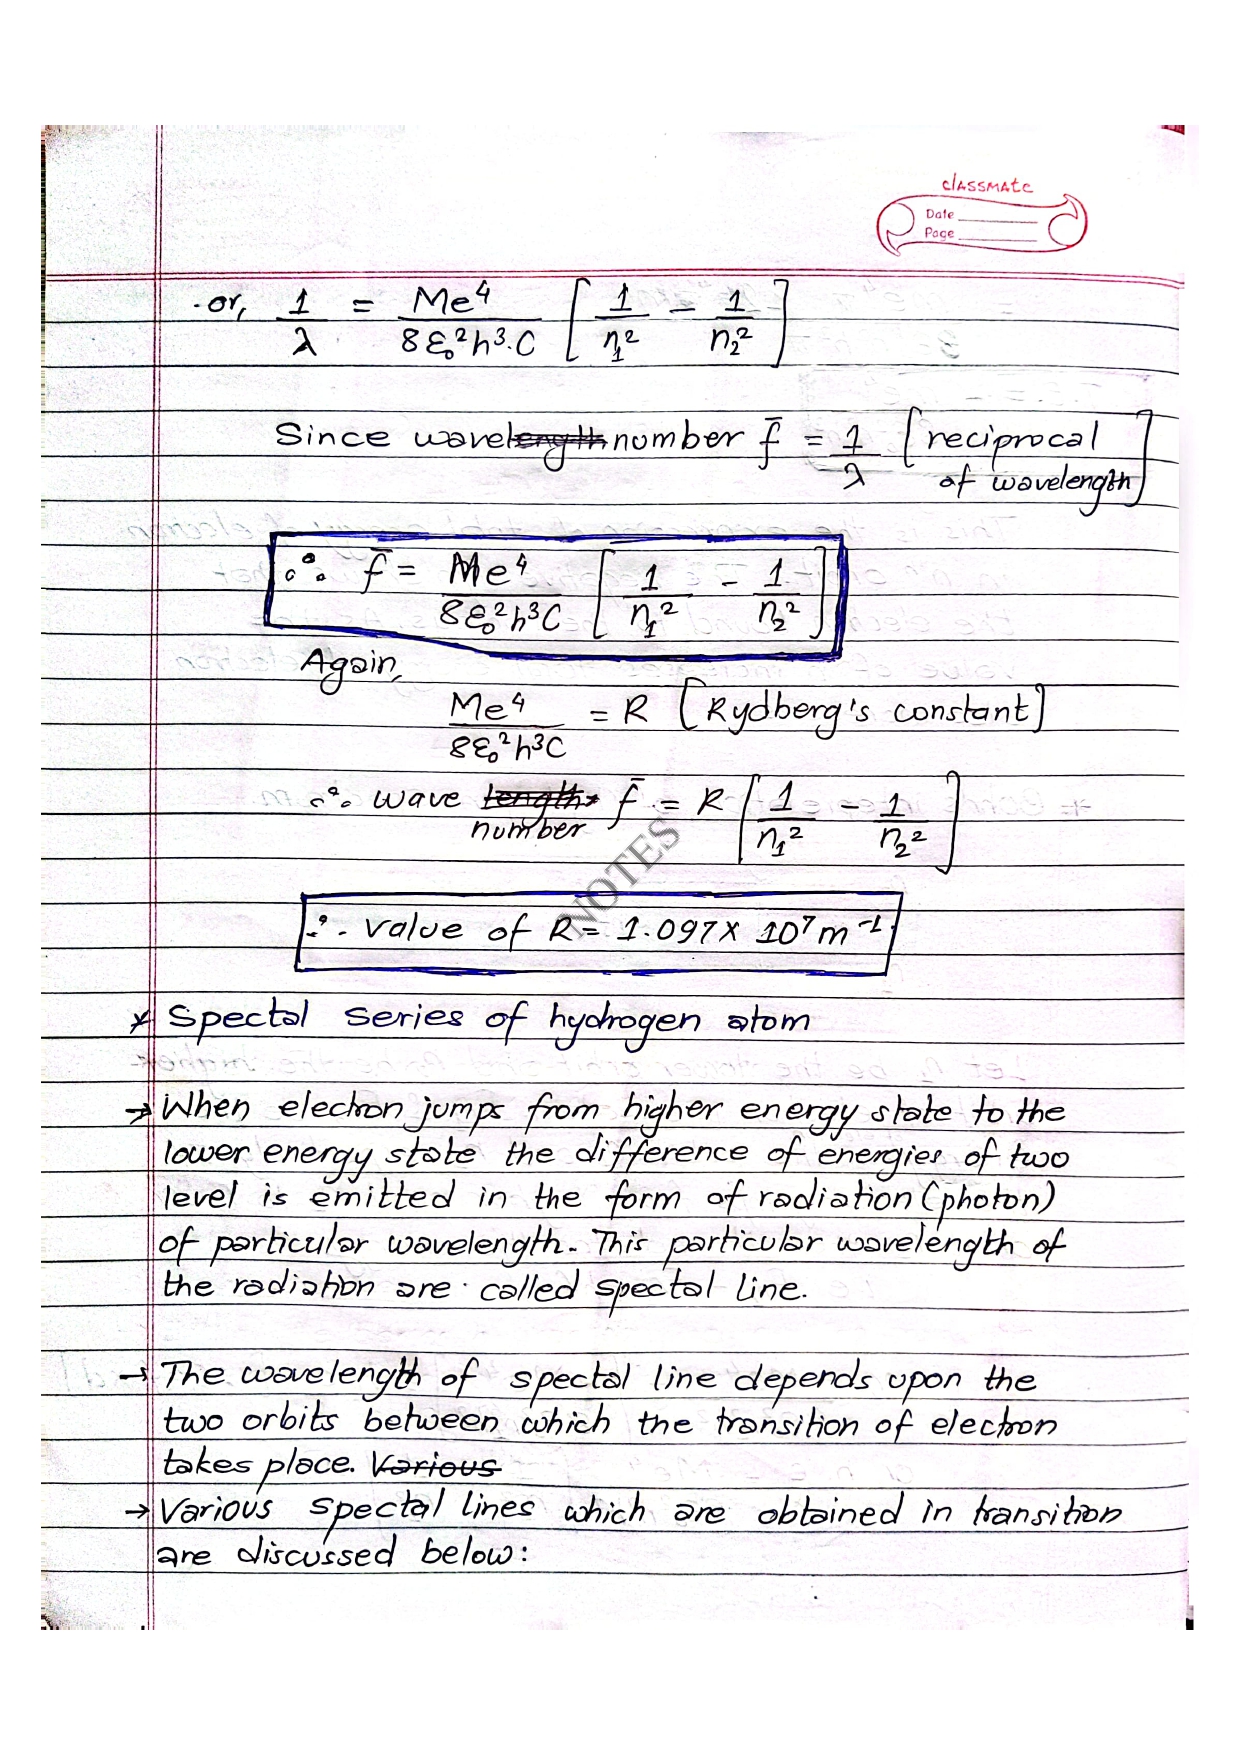 classmate
Date
Page
or, 1/λ = Me⁴/8ε₀²h³.C [1/n₁² - 1/n₂²]
Since wavelength number f̄ = 1/λ [reciprocal of wavelength]
∴ f̄ = Me⁴/8ε₀²h³C [1/n₁² - 1/n₂²]
Again,
Me⁴/8ε₀²h³C = R [Rydberg's constant]
∴ wave length number f̄ = R [1/n₁² - 1/n₂²]
NOTES
∴ value of R = 1.097 x 10⁷ m⁻¹
* Spectal series of hydrogen atom
→ When electron jumps from higher energy state to the
lower energy state the difference of energies of two
level is emitted in the form of radiation (photon)
of particular wavelength. This particular wavelength of
the radiation are called spectal line.
→ The wavelength of spectal line depends upon the
two orbits between which the transition of electron
takes place. Various
→ Various spectal lines which are obtained in transition
are discussed below: